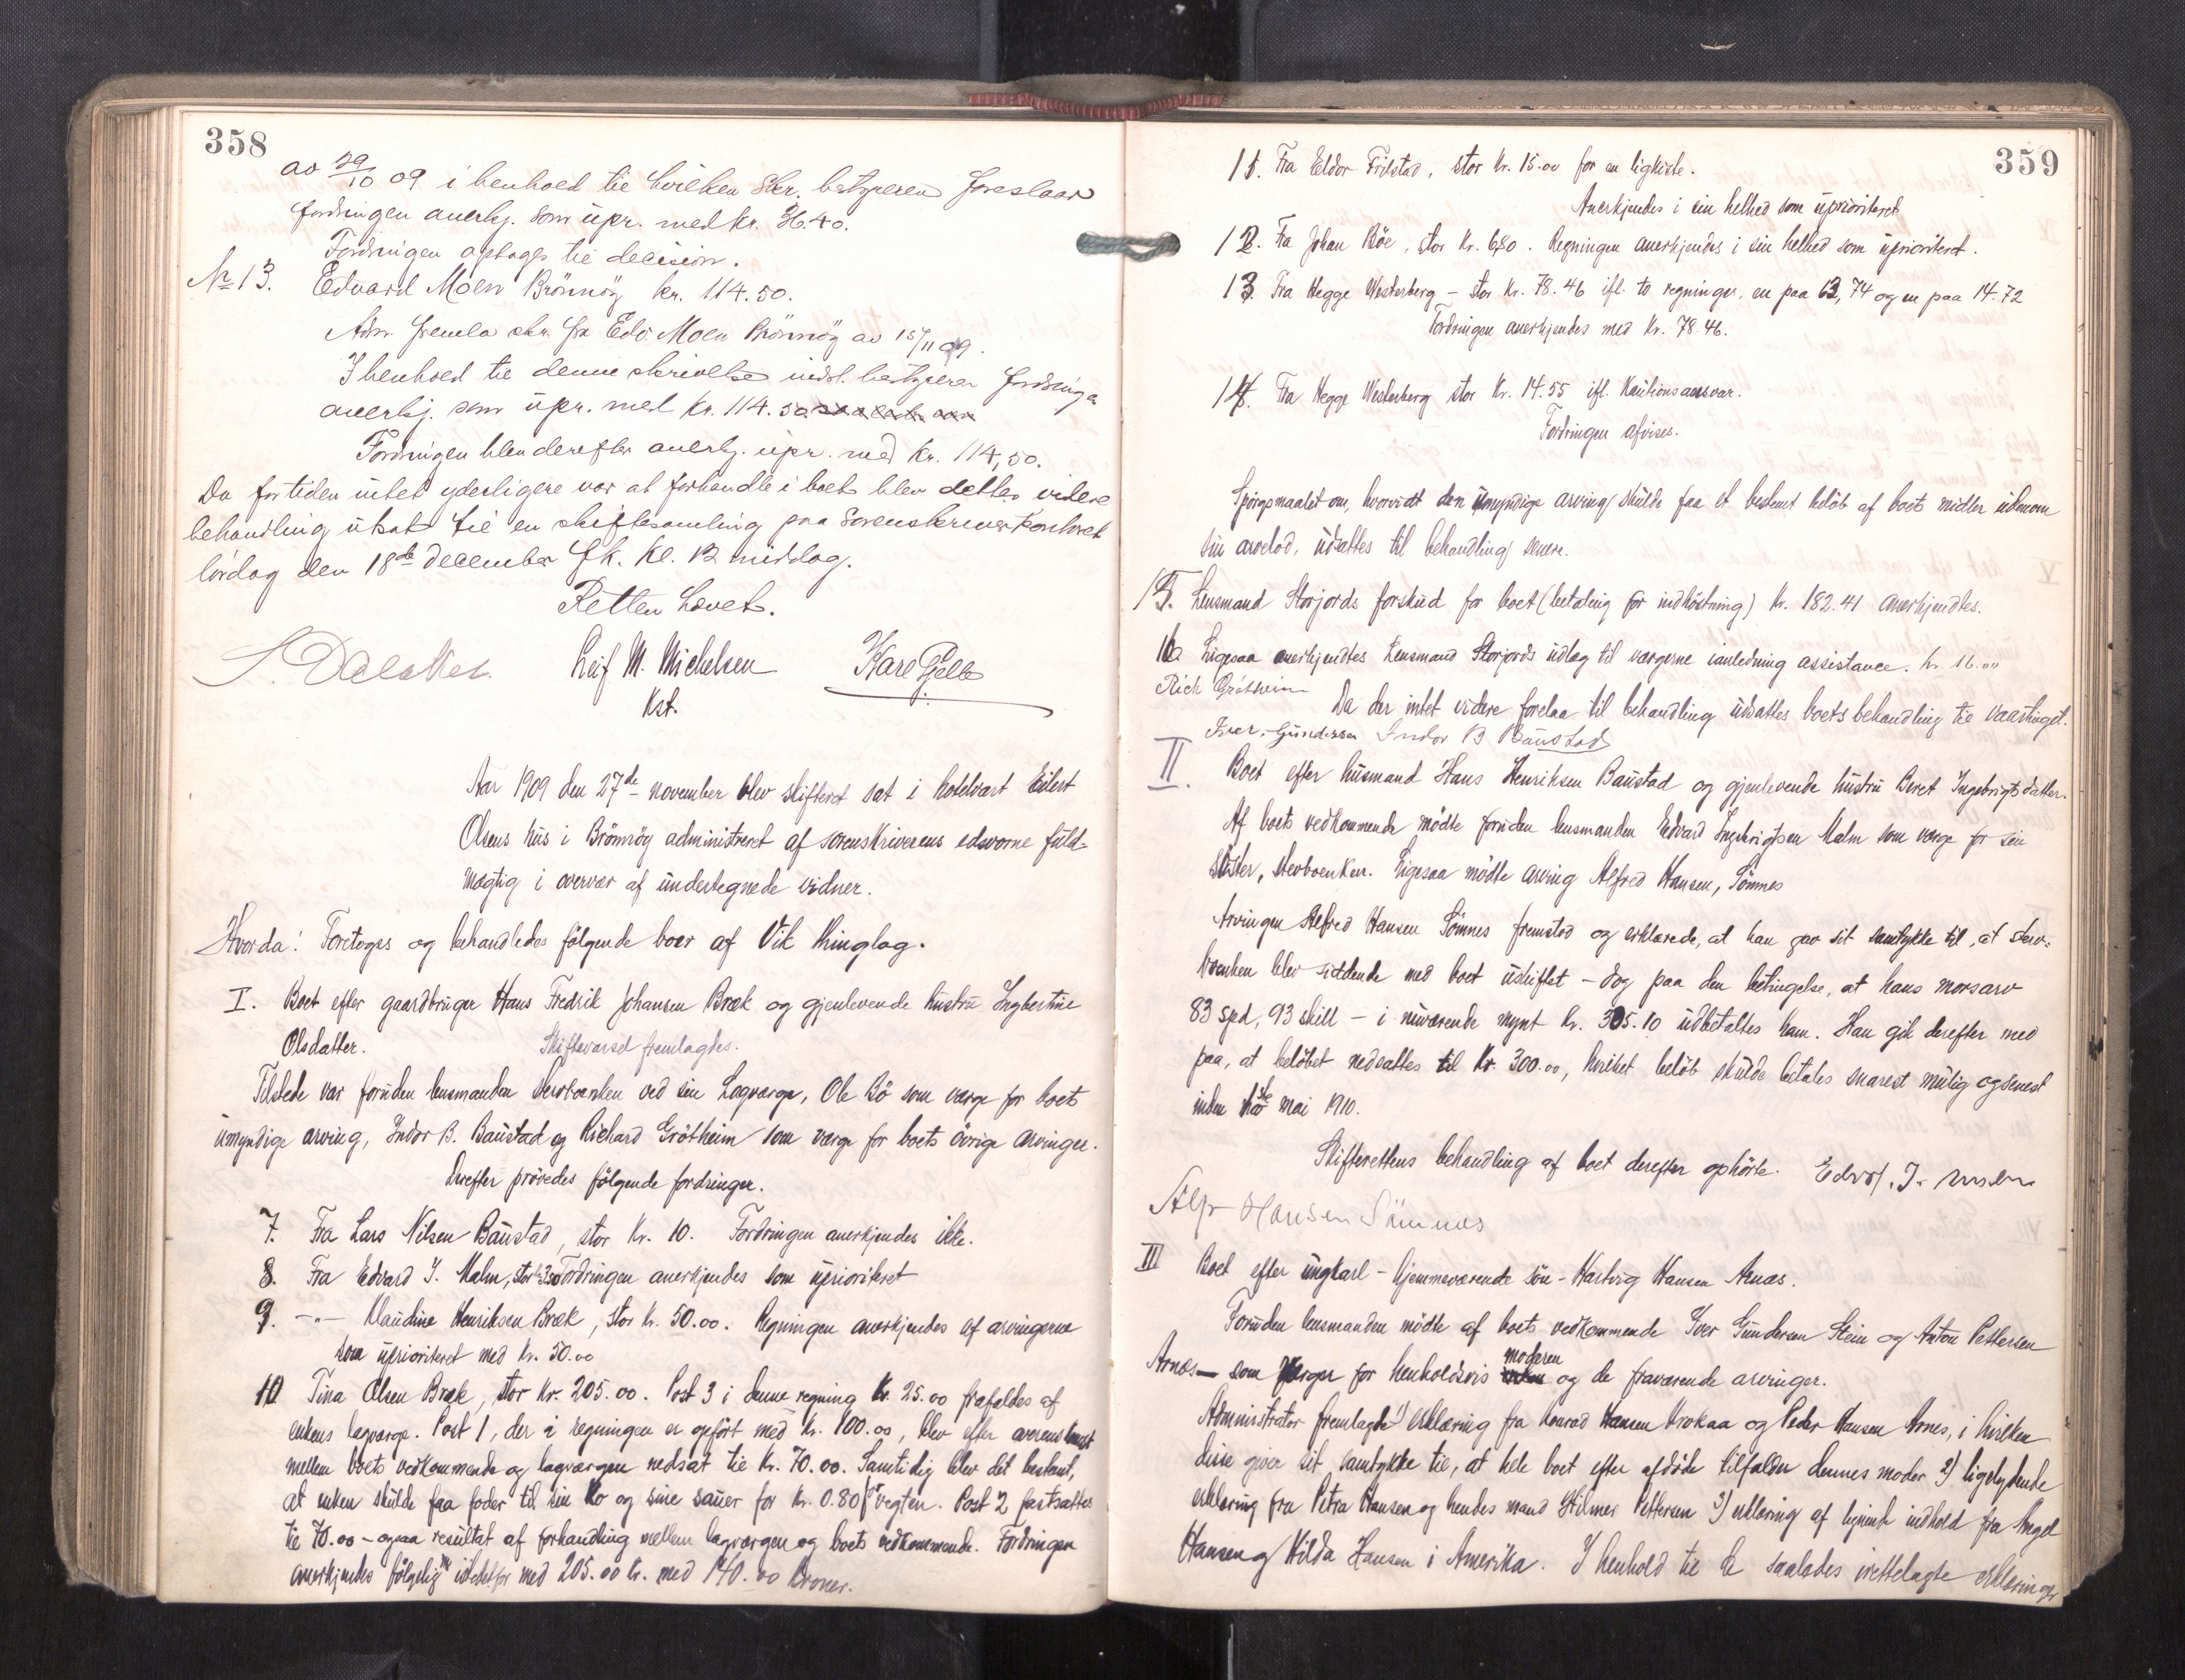 358
av 29/10 09 i henhold til hvilken skr. bestyreren foreslaar
fordringen anerkj. som upr. med kr. 36.40.
Fordringen optages til decision.
No 13. Edvard Moen Brönnöy kr. 114.50.
Adm. fremla skr. fra Edv. Moen Brönnöy av 15/11 09.
I henhold til denne skrivelse indst. bestyreren fordringen
anerkj. som upr. med kr. 114.50
Fordringen blev derefter anerkj. upr. med kr. 114,50.
Da for tiden intet yderligere var at forhandle i boet blev dettes videre
behandling utsat til en skiftesamling paa Sorenskriverkontoret
lördag den 18de december fk. kl. 12 middag.
Retten hævet.
Leif M. Michelsen Karl Gjelb
Kst.
Aar 1909 den 27de november blev skifteret sat i hotelvært Eilert
Olsens hus i Brönnöy administreret af sorenskriverens edsvorne fuld-
mægtig i overvær af undertegnede vidner.
Hvorda: Foretoges og behandledes følgende boer af Vik thinglag.
I. Boet efter gaardbruger Hans Fredrik Johansen Bræk og gjenlevende hustru Ingbertine
Olsdatter. Skiftevarsel fremlagdes.
Tilstede var foruden lensmanden stervboenken ved sin Lagværge, Ole Bö som værge for boets
umyndige arving, Indor B. Baustad og Richard Grötheim som værge for boets övrige arvinger.
Derefter prövedes fölgende fordringer.
7. Fra Lars Nilsen Baustad, stor kr. 10. Fordringen anerkjendes ikke.
8. Fra Edvard I. Malm, stor 3.50 Fordringen anerkjendes som uprioriteret
9. -"- Klaudine Henriksen Bræk, stor kr. 50.00. Regningen anerkjendes af arvingerne
som uprioriteret med kr. 50.00
10 Tina Olsen Bræk, stor kr. 205.00. Post 3 i denne regning kr. 25.00 frafaldes af
enkens lagværge. Post 1, der i regningen er opfört med kr. 100.00, blev efter overenskomst
mellem boets vedkommende og lagværgen nedsat til kr. 70.00. Samtidig blev det bestemt,
at enken skulde faa foder til sin ko og sine sauer for kr. 0.80 pr vegten. Post 2 fastsattes
til 70.00 - ogsaa resultat af forhandling mellem lagværgen og boets vedkommende. Fordringen
anerkjendes fölgelig istedetfor med 205.00 kr. med 140.00 kroner.
359
11. Fra Eldor Fridstad, stor kr. 15.00 for en ligkiste.
Anerkjendes i sin helhed som uprioriteret
12. Fra Johan Böe, stor kr. 6,80. Regningen anerkjendes i sin helhed som uprioriteret.
13. Fra Hegge Westerberg - stor kr. 78.46 ifl. to regninger, en paa 63,74 og en paa 14.72
Fordringen anerkjendes med kr. 78.46.
14. Fra Hegge Westerberg stor kr. 14.55 ifl. Kautionsansvar.
Fordringen afvises.
Spörgsmaalet om, hvorvidt den umyndige arving skulde faa et bestemt belöb af boets midler udenom
sin arvelod, udsattes til behandling senere.
15. Lensmand Storjords forskud for boet (betaling for indhöstning) kr. 182.41 anerkjendtes.
16 Ligesaa anerkjendtes Lensmand Storjords udlæg til værgerne ianledning assistance. kr. 16.00
Rich Grötheim Da der intet videre forelaa til behandling udsattes boets behandling til vaartinget.
Iver Gundersen Indor B Baustad
II. Boet efter husmand Hans Henriksen Baustad og gjenlevende hustru Beret Ingebrigtsdatter.
Af boets vedkommende mödte foruden lensmanden Edvard Ingebrigtsen Malm som værge for sin
söster, stervboenken. Ligesaa mödte arving Alfred Hansen, Sömnes
Arvingen Alfred Hansen Sömnes fremstod og erklærede, at han gav sit samtykke til, at sterv-
boenken blev siddende med boet uskiftet - dog paa den betingelse, at hans morsarv
83 spd, 93 skill - i nuværende mynt kr. 335.10 udbetaltes ham. Han gik derefter med
paa, at belöbet nedsattes til kr. 300.00, hvilket belöb skulde betales snarest mulig og senest
inden 1ste mai 1910.
Skifterettens behandling af boet derefter ophörte. Edvard. I. Malm
Alfr Hansen Sömnes
III Boet efter ungkarl - hjemmeværende sön - Hartvig Hansen Arnæs.
Foruden lensmanden mödte af boets vedkommende Iver Gundersen Stein og Anton Pettersen
Arnæs - som værger for henholdsvis moderen og de fraværende arvinger.
Administrator fremlagde 1) erklæring fra Konrad Hansen Krokaa og Peder Hansen Arnes, i hvilken
disse giver sit samtykke til, at hele boet efter afdöde tilfalder dennes moder 2) ligelydende
erklæring fra Petra Hansen og hendes mand Hilmer Pettersen 3) erklæring af lignende indhold fra Angel
Hansen og Hilda Hansen i Amerika. I henhold til de saaledes irettelagte erklæringer